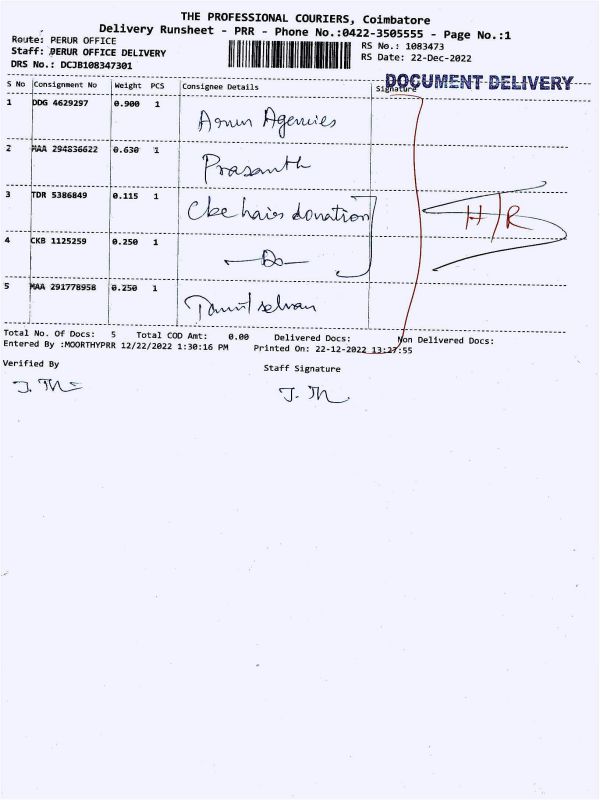 THE PROFESSIONAL COURIERS, Coimbatore
Delivery Runsheet - PRR - Phone No.:0422-3505555 - Page No.:1
Route: PERUR OFFICE
RS No.: 1083473
Staff: PERUR OFFICE DELIVERY
RS Date: 22-Dec-2022
DRS No.: DCJB108347301
DOCUMENT DELIVERY
S No Consignment No Weight PCS Consignee Details Signature
1 DDG 4629297 0.900 1 Arun Agencies
2 MAA 294836622 0.630 1 Prasanth
3 TDR 5386849 0.115 1 Cbe hair donation
H/R
4 CKB 1125259 0.250 1 —Do—
5 MAA 291778958 0.250 1 Tamil selvan
Total No. Of Docs: 5 Total COD Amt: 0.00 Delivered Docs: Non Delivered Docs:
Entered By :MOORTHYPRR 12/22/2022 1:30:16 PM Printed On: 22-12-2022 13:27:55
Verified By
Staff Signature